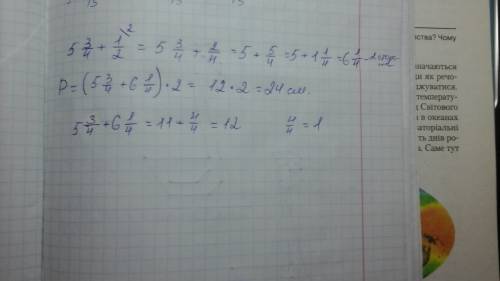 5 3/4 + 1/2 ^2 = 5 3/4 + 2/4 = 5 + 5/4 = 5 + 1 1/4 = 6 1/4 -
P = (5 3/4 + 6 1/4) · 2 = 12 · 2 = 24 см.
5 3/4 + 6 1/4 = 11 + 4/4 = 12 4/4 = 1
ства? Чому
значаються
ди як речо-
джуватися.
температу-
д Світового
а в океанах
ваторіальні
ть днів ро-
Саме тут